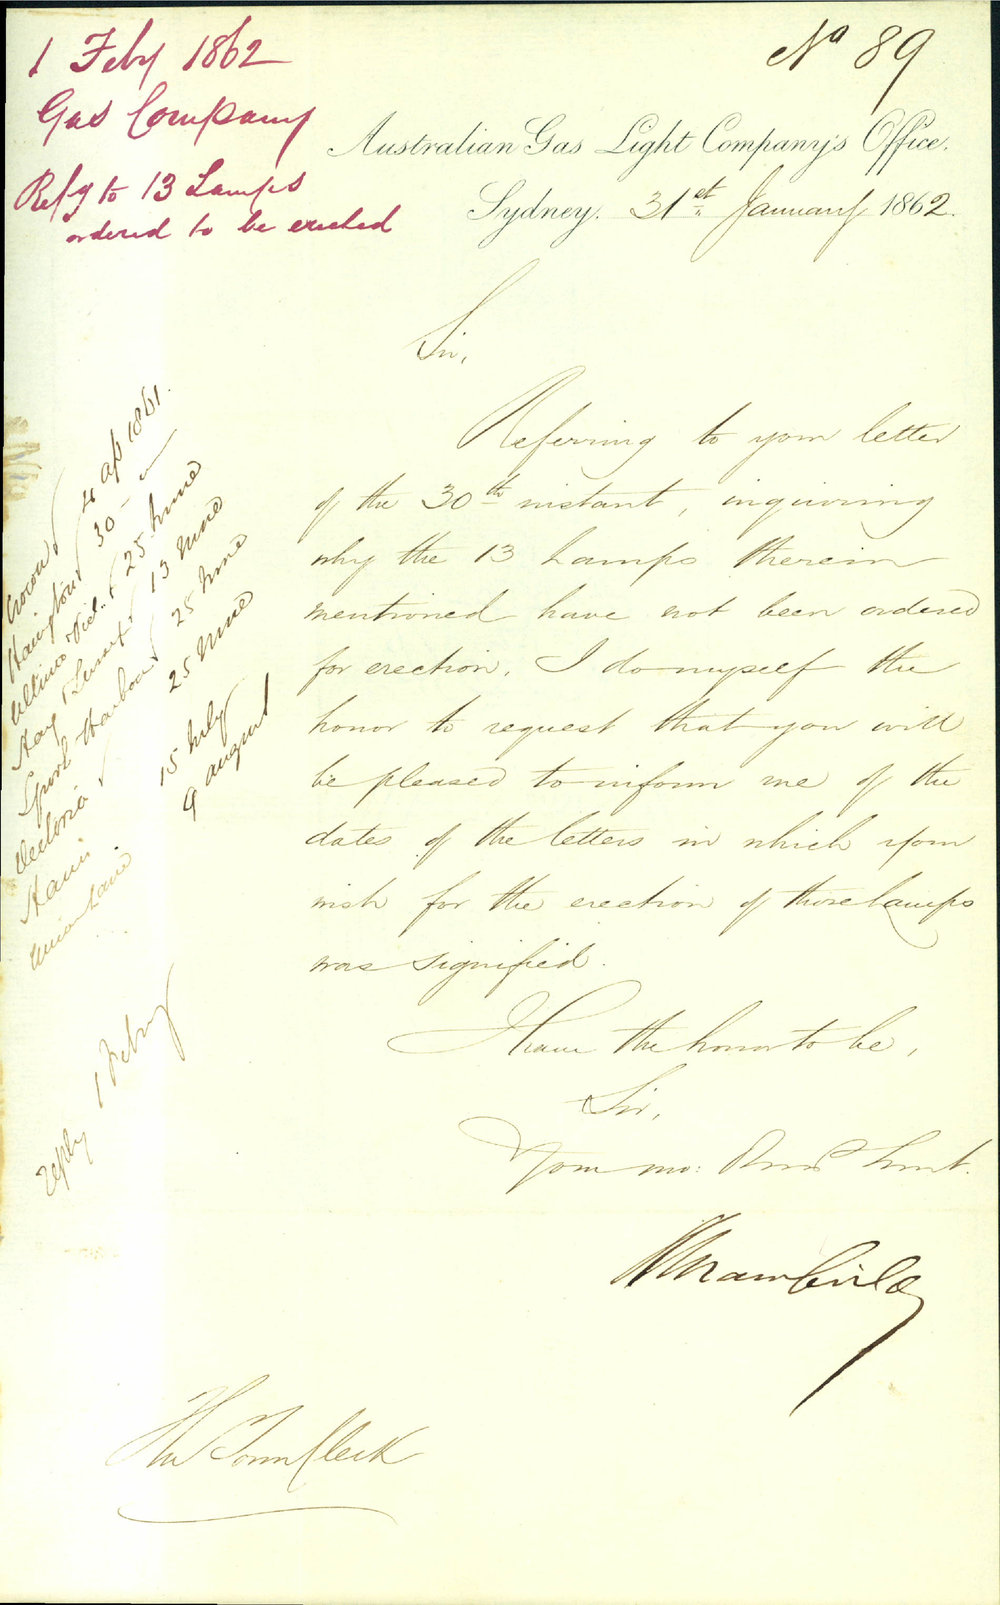 1 Feby 1862
Gas Company
Refg to 13 Lamps
ordered to be erected
No 89
Australian Gas Light Company's Office.
Sydney. 31st January 1862.
Sir,
Referring to your letter
of the 30th instant, inquiring
why the 13 Lamps therein
mentioned have not been ordered
for erection. I do myself the
honor to request that you will
be pleased to inform me of the
dates of the letters in which your
wish for the erection of those Lamps
was signified.
I have the honor to be,
Sir,
Your mo: Obdt Servt.
The Town Clerk
4 ap 1861.
30 -
Ultimo 25 June
13 June
Harbour 25 June
Victoria 25 June
15 July
9 august
Union Lane
reply 1 Febry